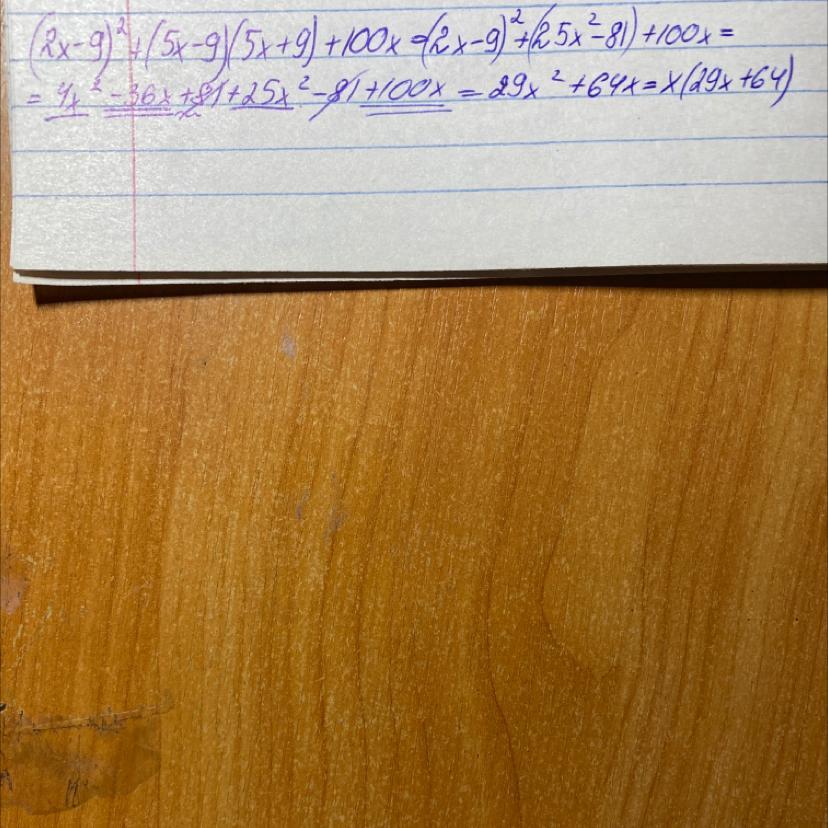 (2x-9)²+(5x-9)(5x+9)+100x=(2x-9)²+(25x²-81)+100x=
=4x²-36x+81+25x²-81+100x=29x²+64x=x(29x+64)